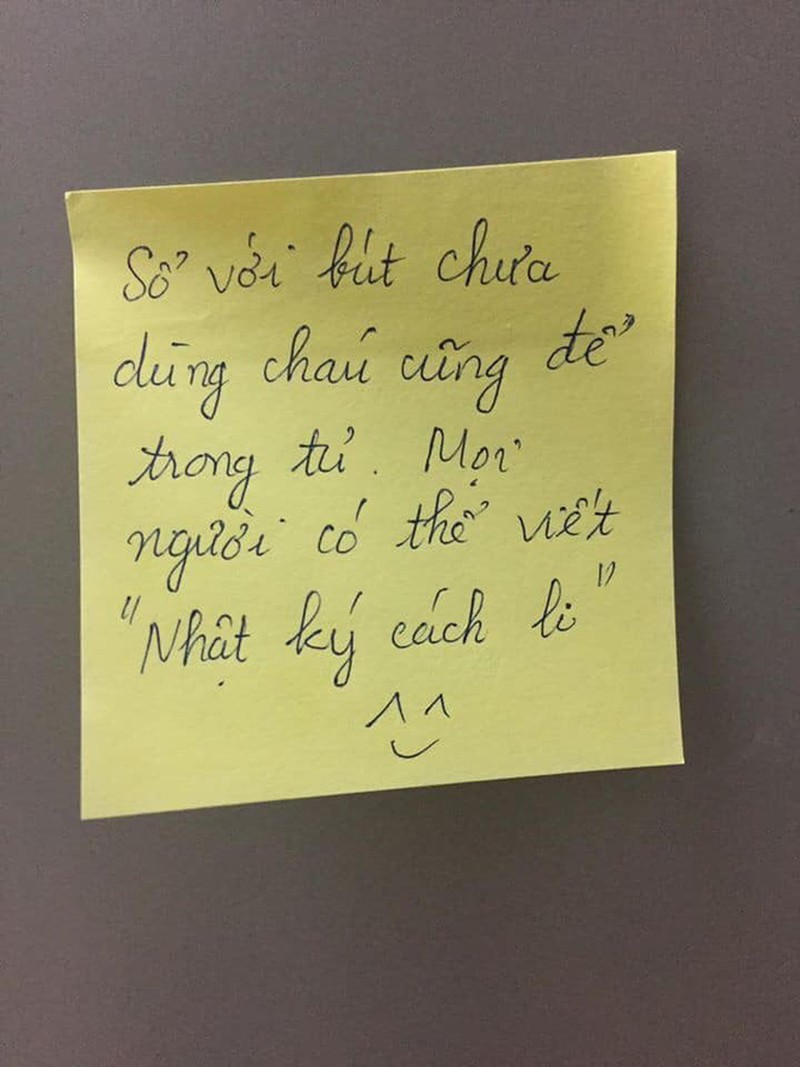 Sổ với bút chưa
dùng cháu cũng để
trong tủ. Mọi
người có thể viết
"Nhật ký cách li"
^ ^